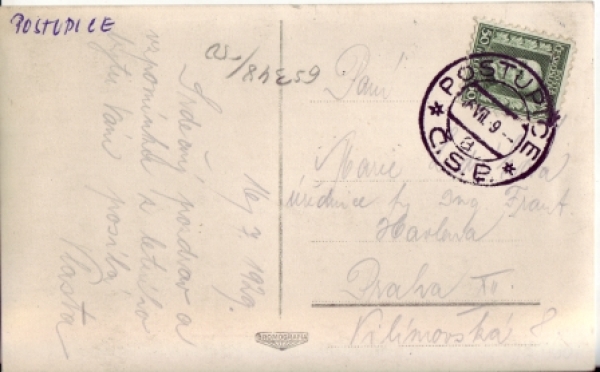 POSTUPICE
65348/-50
Srdečný pozdrav a
vzpomínku z letního
bytu Vám posílá
Vlasta
1929.
Paní
POSTUPICE
Č.S.P.
a
Marie
úřednice fy Ing Frant.
Havlena
Praha
Vilímovská 8